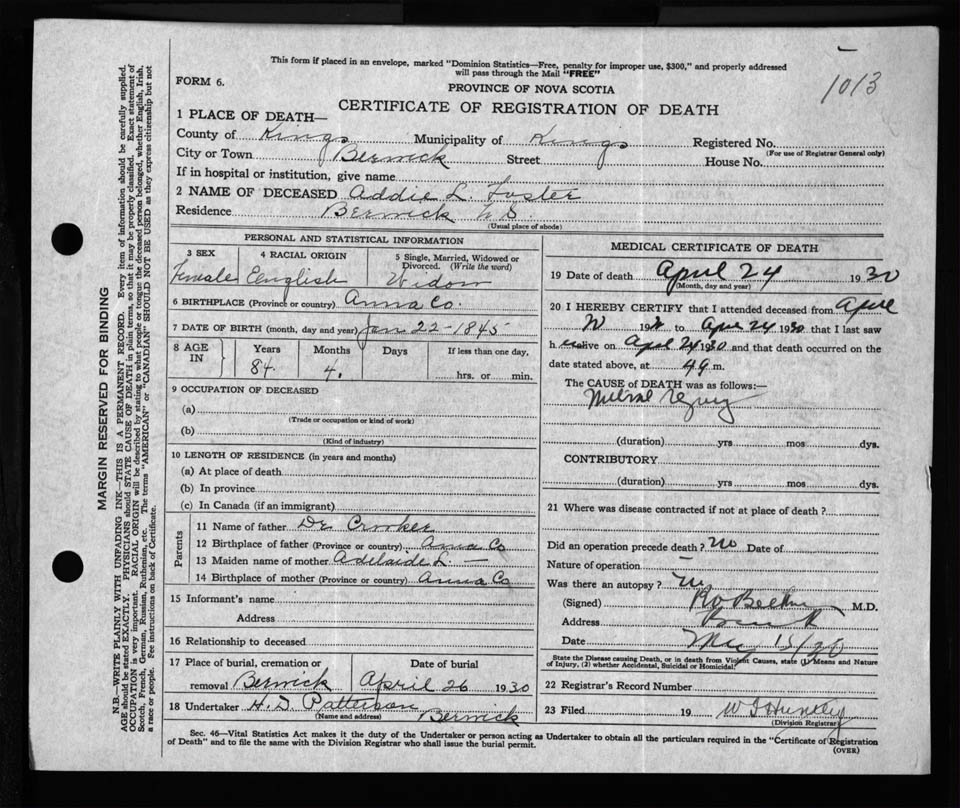 This form if placed in an envelope, marked "Dominion Statistics—Free, penalty for improper use, $300," and properly addressed
will pass through the Mail "FREE"
FORM 6.
PROVINCE OF NOVA SCOTIA
1013
CERTIFICATE OF REGISTRATION OF DEATH
1 PLACE OF DEATH—
County of Kings Municipality of Kings Registered No.
(For use of Registrar General only)
City or Town Berwick Street House No.
If in hospital or institution, give name
2 NAME OF DECEASED Addie L. Foster
Residence Berwick N.S.
(Usual place of abode)
PERSONAL AND STATISTICAL INFORMATION
3 SEX 4 RACIAL ORIGIN 5 Single, Married, Widowed or
Divorced. (Write the word)
Female English Widow
6 BIRTHPLACE (Province or country) Anna Co.
7 DATE OF BIRTH (month, day and year) Jan 22-1845
8 AGE IN Years Months Days If less than one day,
84 4. hrs. or min.
9 OCCUPATION OF DECEASED
(a)
(Trade or occupation or kind of work)
(b)
(Kind of industry)
10 LENGTH OF RESIDENCE (in years and months)
(a) At place of death
(b) In province
(c) In Canada (if an immigrant)
Parents
11 Name of father Dr Crooker
12 Birthplace of father (Province or country) Anna Co
13 Maiden name of mother Adelaide L. —
14 Birthplace of mother (Province or country) Anna Co
15 Informant's name
Address
16 Relationship to deceased
17 Place of burial, cremation or Date of burial
removal Berwick April 26 1930
18 Undertaker H. D. Patterson Berwick
(Name and address)
MEDICAL CERTIFICATE OF DEATH
19 Date of death April 24 1930
(Month, day and year)
20 I HEREBY CERTIFY that I attended deceased from April
19 to April 24 1930 that I last saw
h alive on April 24 1930 and that death occurred on the
date stated above, at m.
The CAUSE OF DEATH was as follows:—
Mitral
(duration) yrs mos dys.
CONTRIBUTORY
(duration) yrs mos dys.
21 Where was disease contracted if not at place of death?
Did an operation precede death? No Date of
Nature of operation
Was there an autopsy? No
(Signed) M.D.
Address
Date
State the Disease causing Death, or in death from Violent Causes, state (1) Means and Nature
of Injury, (2) whether Accidental, Suicidal or Homicidal
22 Registrar's Record Number
23 Filed 19 W Huntley
(Division Registrar)
Sec. 46—Vital Statistics Act makes it the duty of the Undertaker or person acting as Undertaker to obtain all the particulars required in the "Certificate of Registration
of Death" and to file the same with the Division Registrar who shall issue the burial permit.
(OVER)
MARGIN RESERVED FOR BINDING
N.B.—WRITE PLAINLY WITH UNFADING INK—THIS IS A PERMANENT RECORD. Every item of information should be carefully supplied.
AGE should be stated EXACTLY. PHYSICIANS should STATE CAUSE OF DEATH in plain terms, so that it may be properly classified. Exact statement of
OCCUPATION is very important. RACIAL ORIGIN will be described by stating to what people or tongue the deceased person belonged, whether English, Irish,
Scotch, French, German, Russian, Ruthenian, etc. The terms "AMERICAN" or "CANADIAN" SHOULD NOT BE USED as they express citizenship but not
a race or people. Fee instructions on back of Certificate.